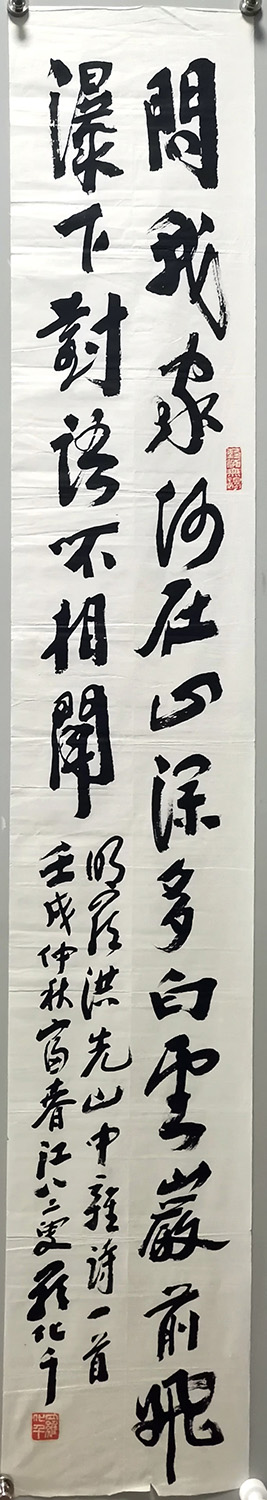 問我家何在山深多白雲巖前飛
瀑下對語不相聞
明羅洪先山中雜詩一首
壬戌仲秋富春江八二叟羅化千